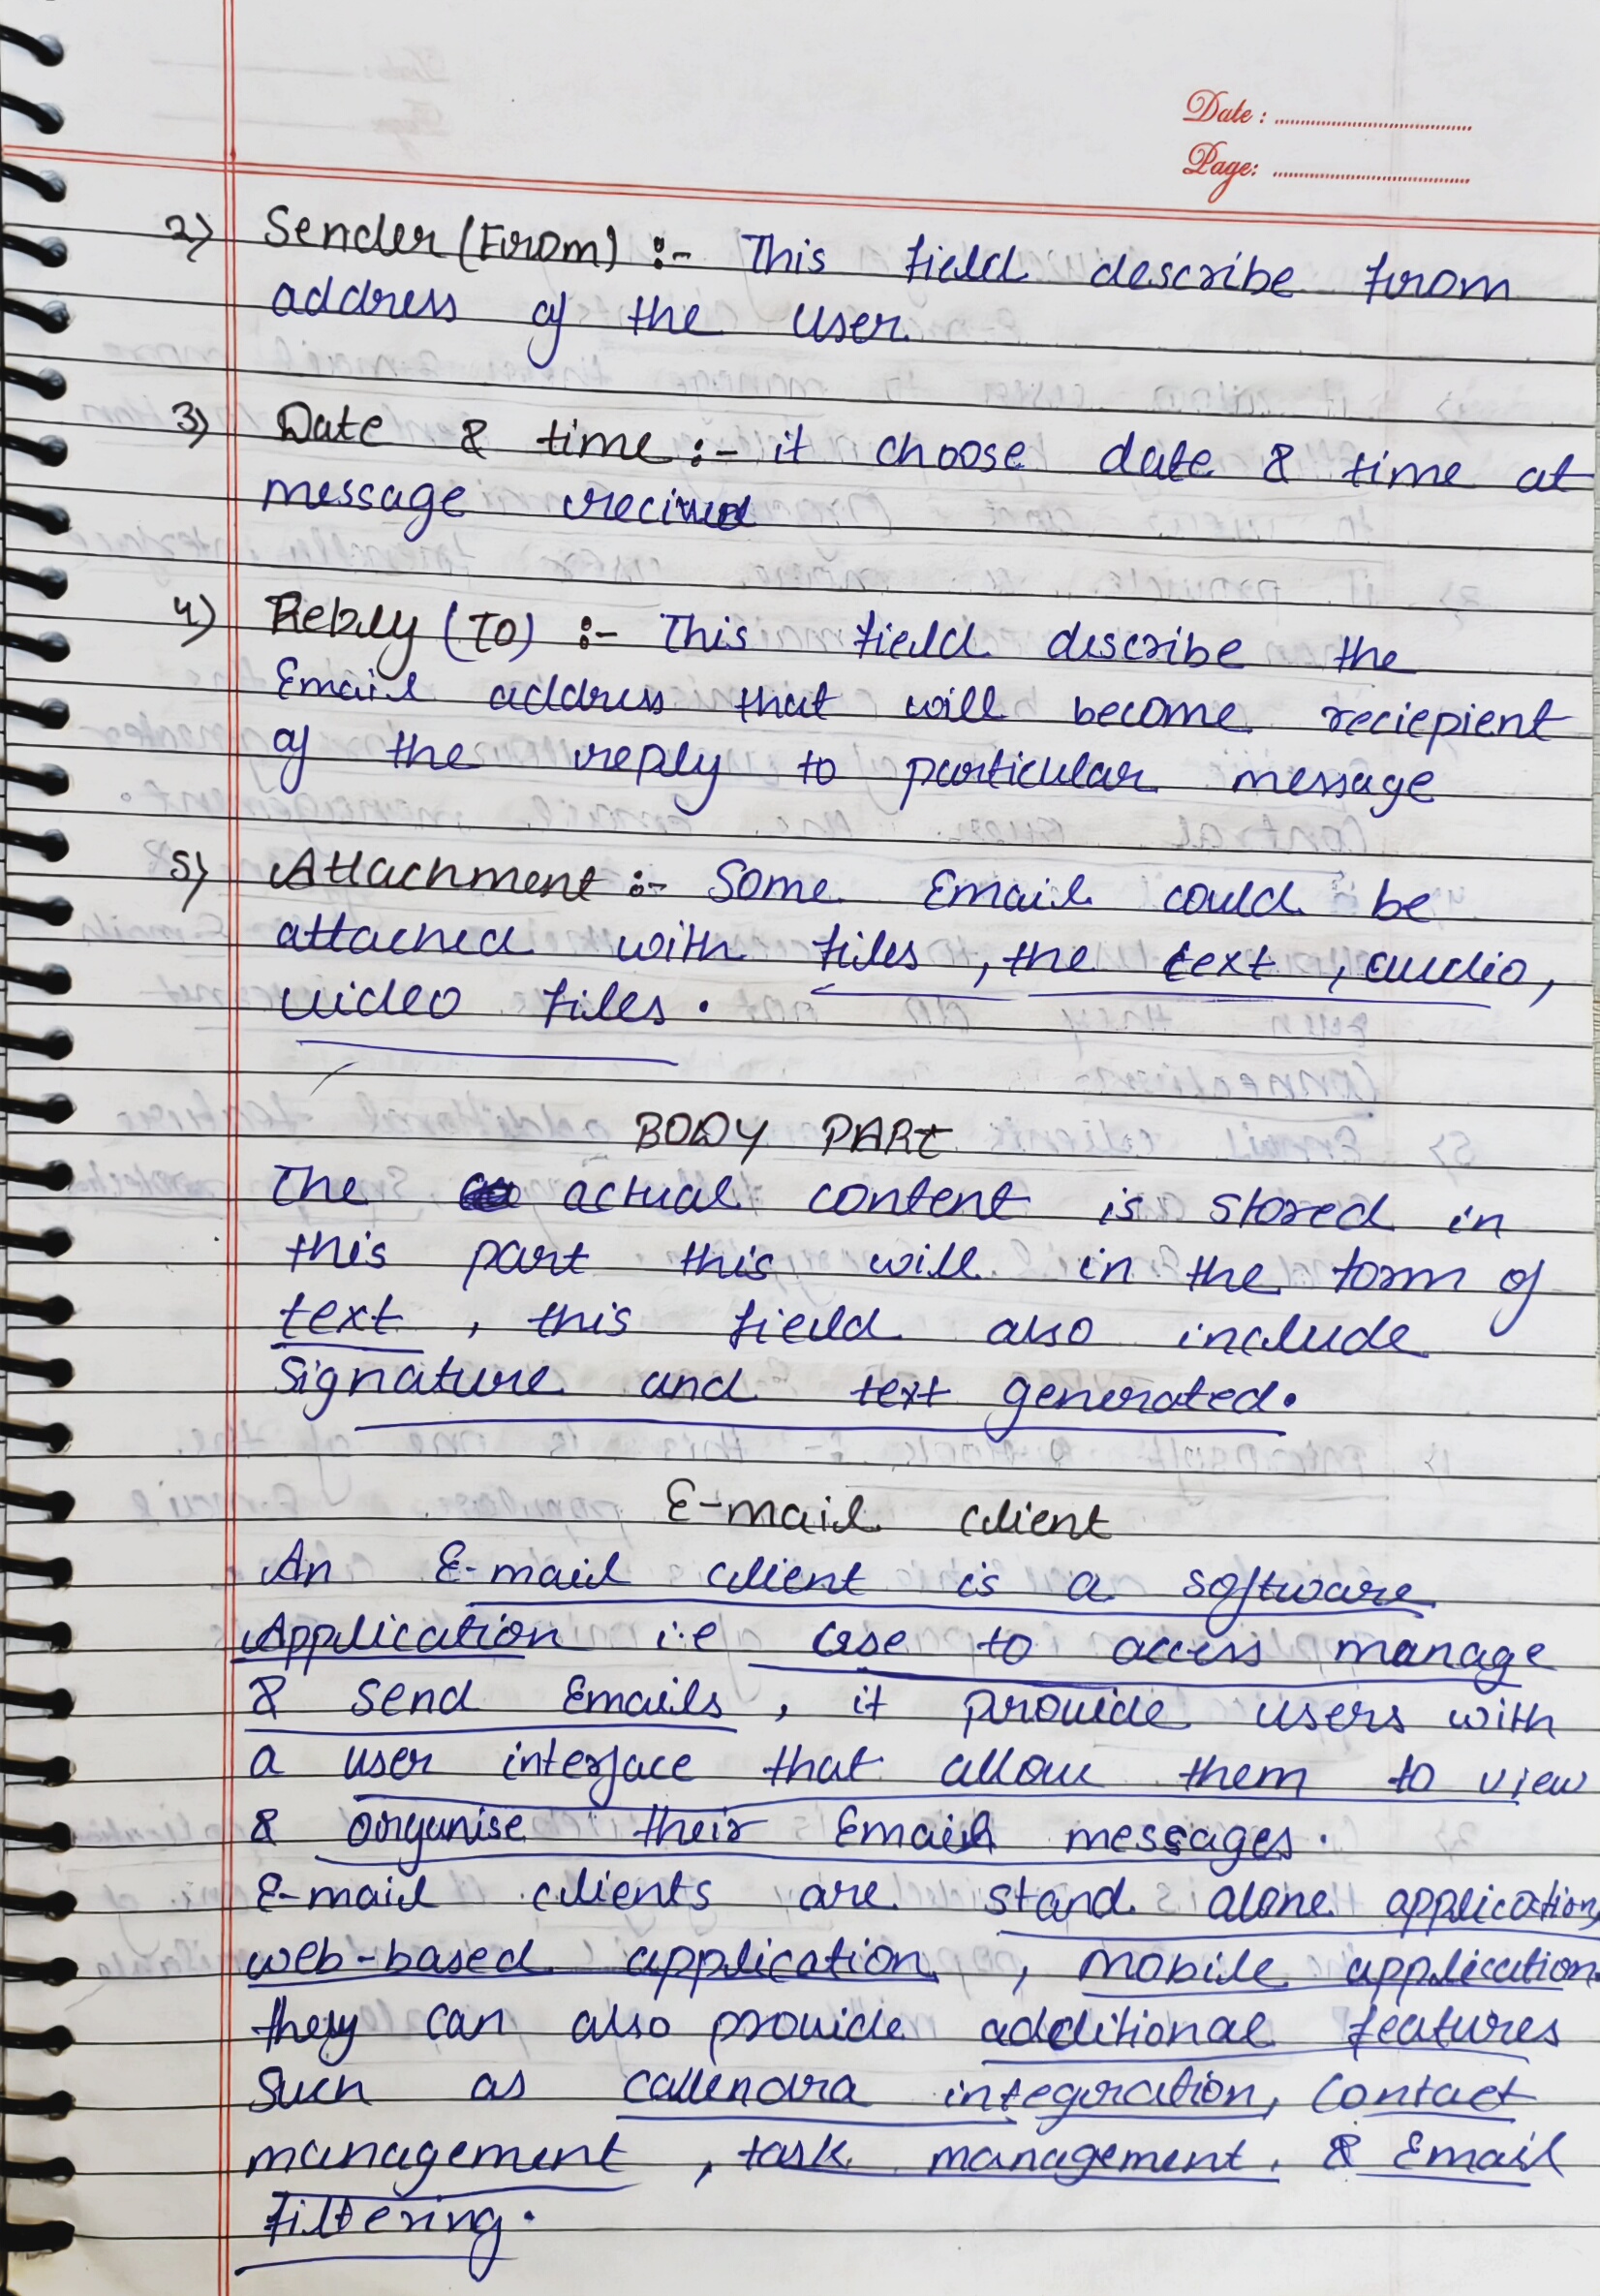 Date :
Page:
2) Sender (From) :- This field describe from
address of the user.
3) Date & time :- it choose date & time at
message recived
4) Reply (To) :- This field describe the
Email address that will become reciepient
of the reply to particular message
5) Attachment :- Some Email could be
attached with files , the text , audio,
video files .
BODY PART
The actual content is stored in
this part this will in the form of
text , this field also include
signature and text generated.
E-mail client
An E-mail client is a software
Application i.e use to access manage
& send Emails , it provide users with
a user interface that allow them to view
& organise their Email messages .
E-mail clients are stand alone application,
web-based application , mobile application.
they can also provide additional features
Such as callendra integration, Contact
management , task management . & Email
filtering .